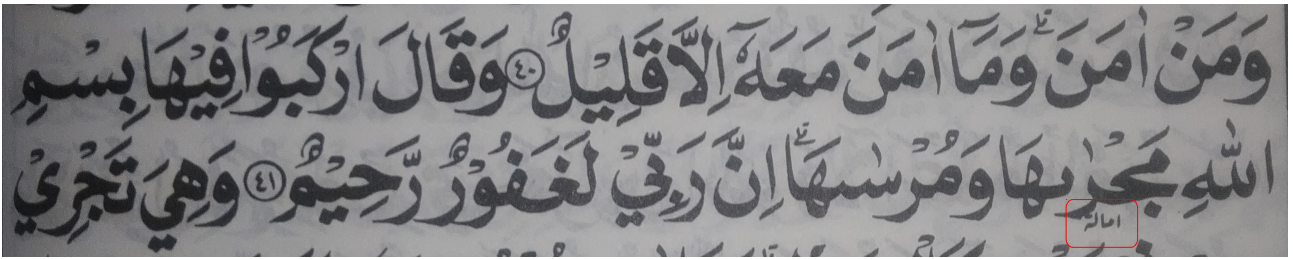 وَمَنْ اٰمَنَ ؕ وَمَآ اٰمَنَ مَعَهٗٓ اِلَّا قَلِيْلٌ ﴿٤٠﴾ وَقَالَ ارْكَبُوْا فِيْهَا بِسْمِ
اللّٰهِ مَجْرٖىهَا وَمُرْسٰىهَا ؕ اِنَّ رَبِّيْ لَغَفُوْرٌ رَّحِيْمٌ ﴿٤١﴾ وَهِيَ تَجْرِيْ
امالة